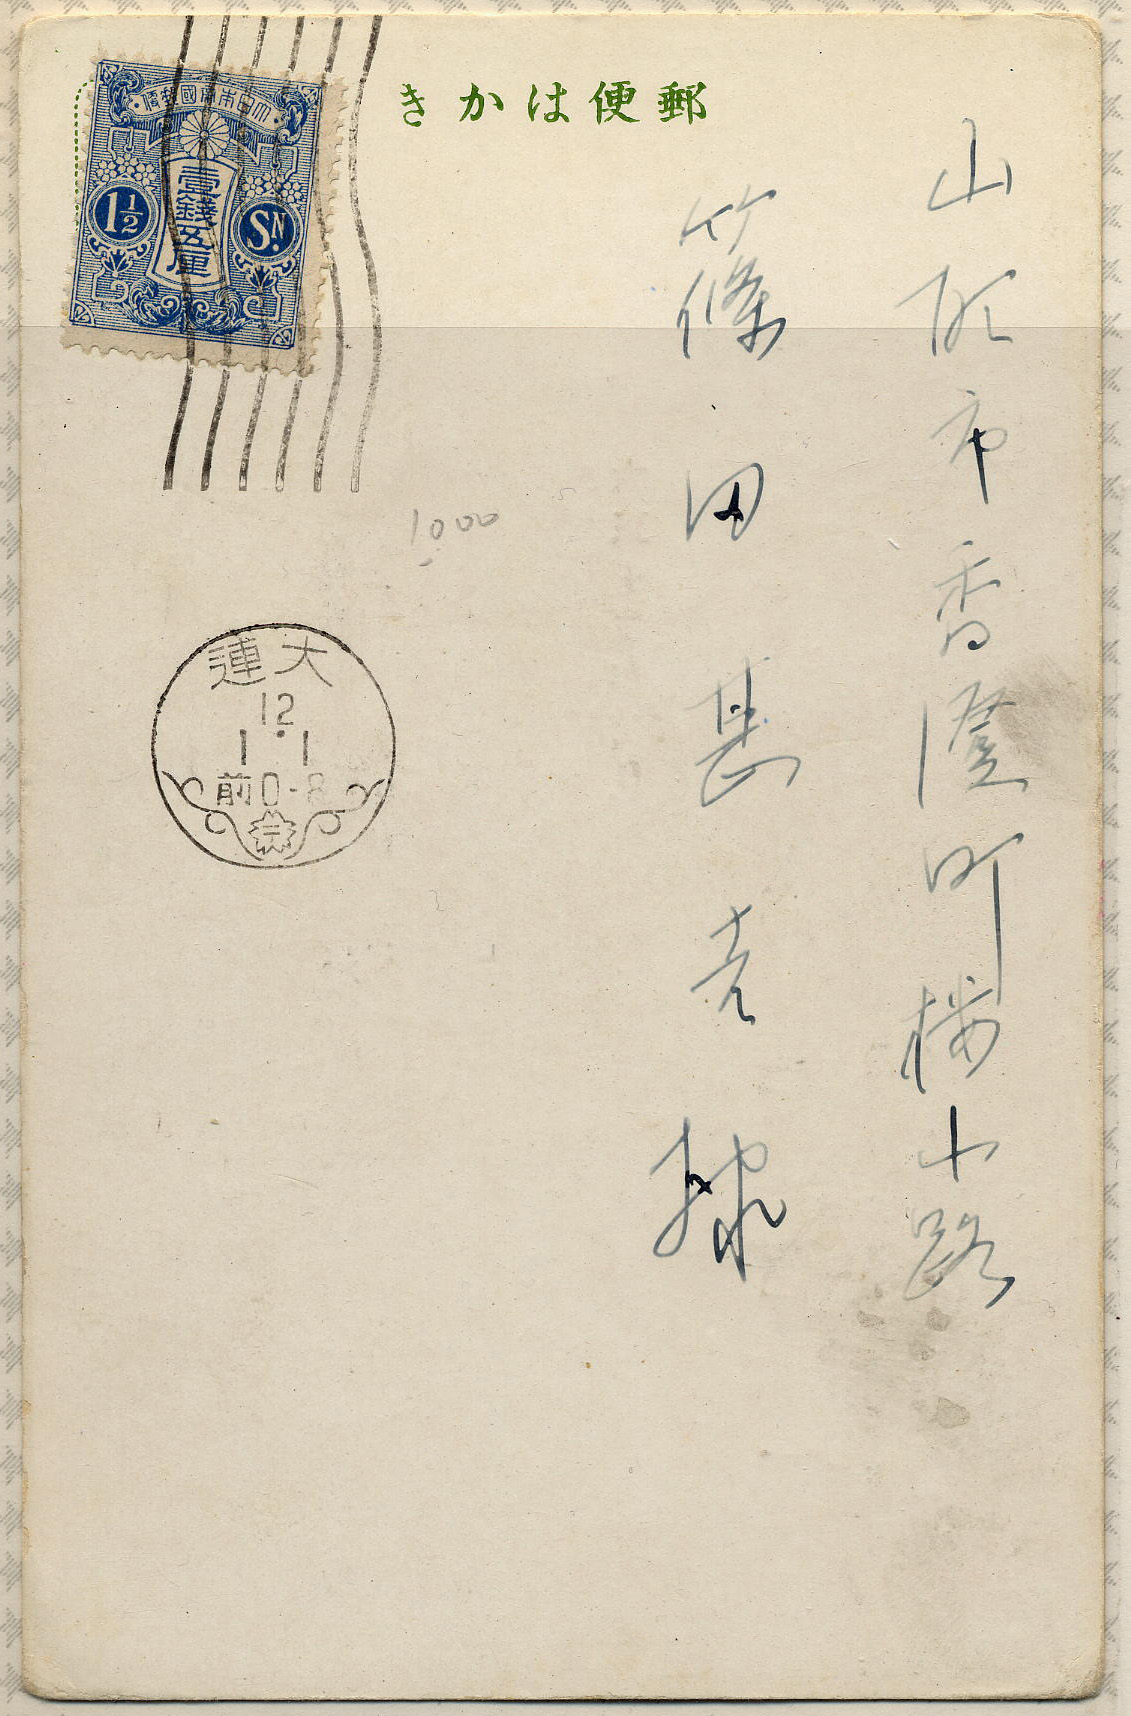 郵便はかき
大日本帝國郵便
壹錢五厘
1½
SN.
山形市香澄町桜小路
篠田甚吉様
1000
大連
12
1.1
前0-8